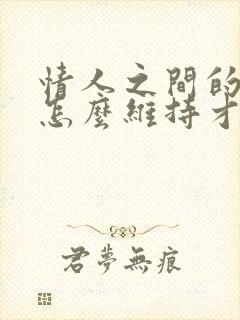 情人之間的
怎麼維持才
君夢無痕